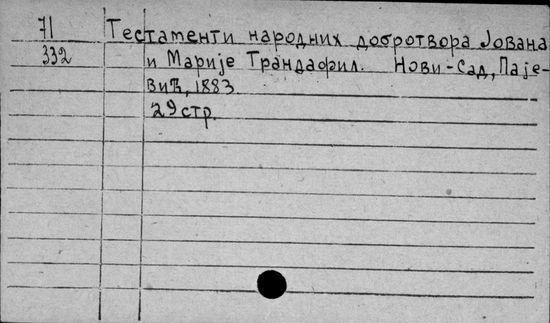 71 Тестаменти народних добротвора Јована
332 и Марије Трандафил. Нови-Сад, Паје-
вић, 1883
29 стр.